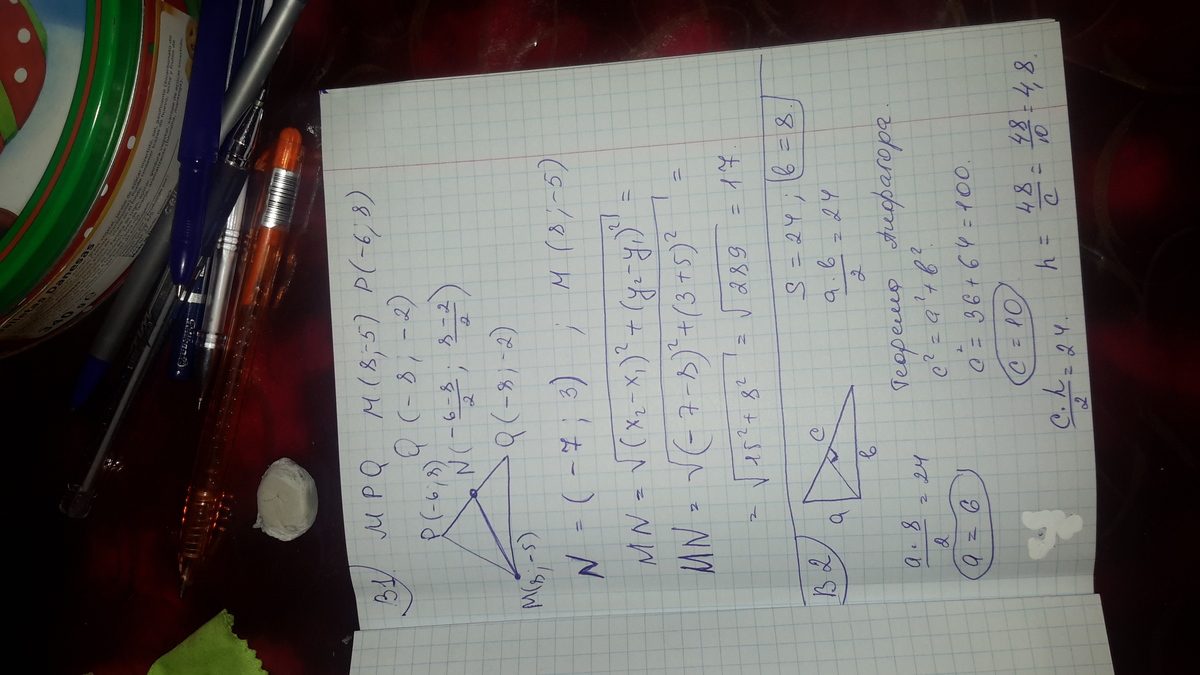 B1) MPQ M(8;-5) P(-6;8)
Q(-8;-2)
P(-6;8) N(-6-8/2; 8-2/2)
Q(-8;-2)
M(8;-5)
N = (-7; 3) ; M(8;-5)
MN = √(x₂-x₁)²+(y₂-y₁)² =
MN = √(-7-8)²+(3+5)² =
= √15²+8² = √289 = 17.
B2) S=24; b=8.
a c b
a·b/2=24
Теорема Пифагора.
a·8/2=24
c²=a²+b².
a=6
c²=36+64=100.
c=10
c·h/2=24.
h=48/c=48/10=4,8.
Danesas